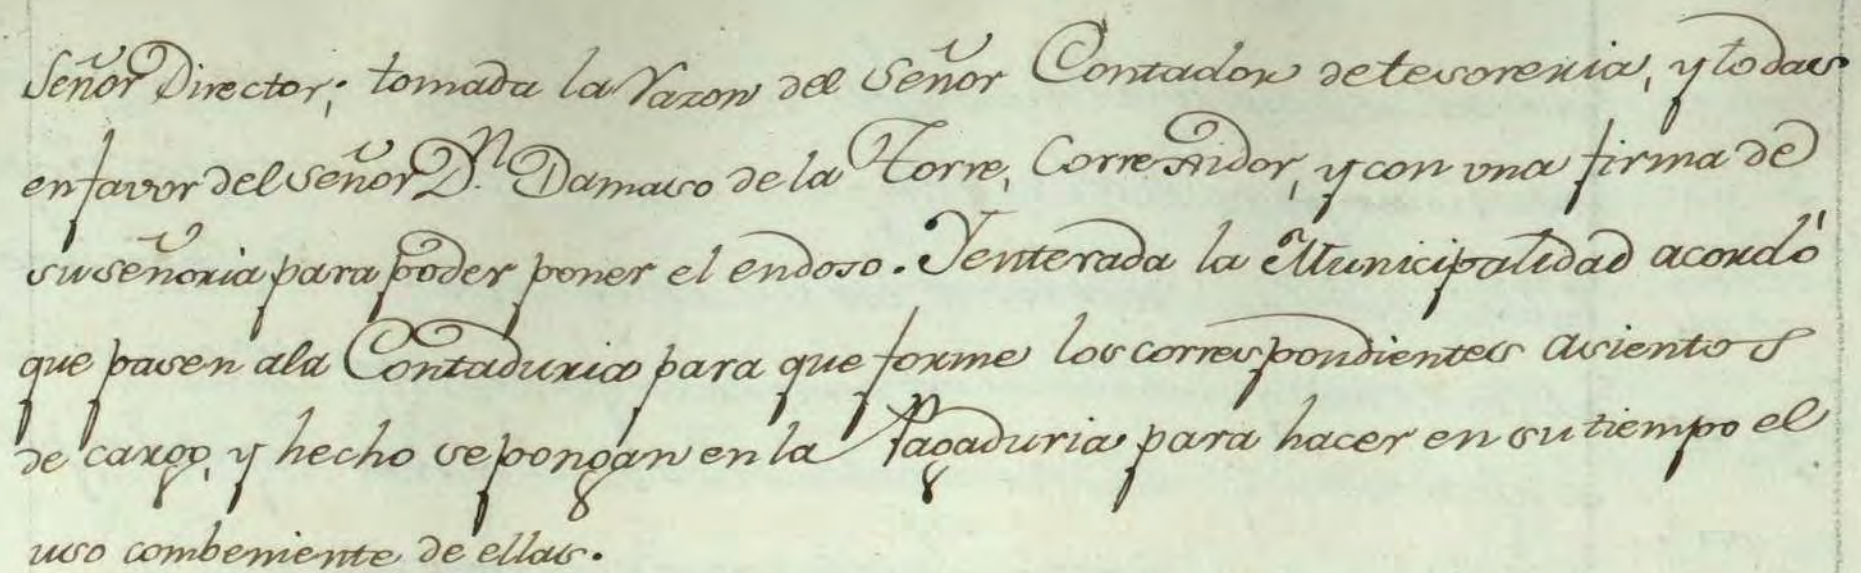 Señor Director; tomada la razon del Señor Contador de tesoreria, y todas
en favor del señor D.n Damaso de la Torre, Corregidor, y con una firma de
su señoria para poder poner el endoso. Y enterada la Municipalidad acordó
que pasen a la Contaduria para que forme los correspondientes asientos
de cargo, y hecho se pongan en la Pagaduria para hacer en su tiempo el
uso combeniente de ellas.